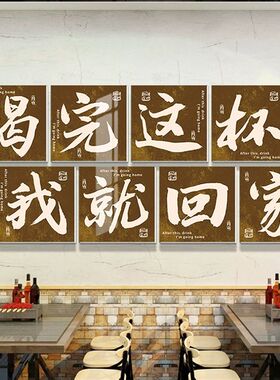 喝完这杯
我就回家
After this, drink
I'm going home
After this, drink
I'm going home
After this, drink
I'm going home
After this, drink
I'm going home